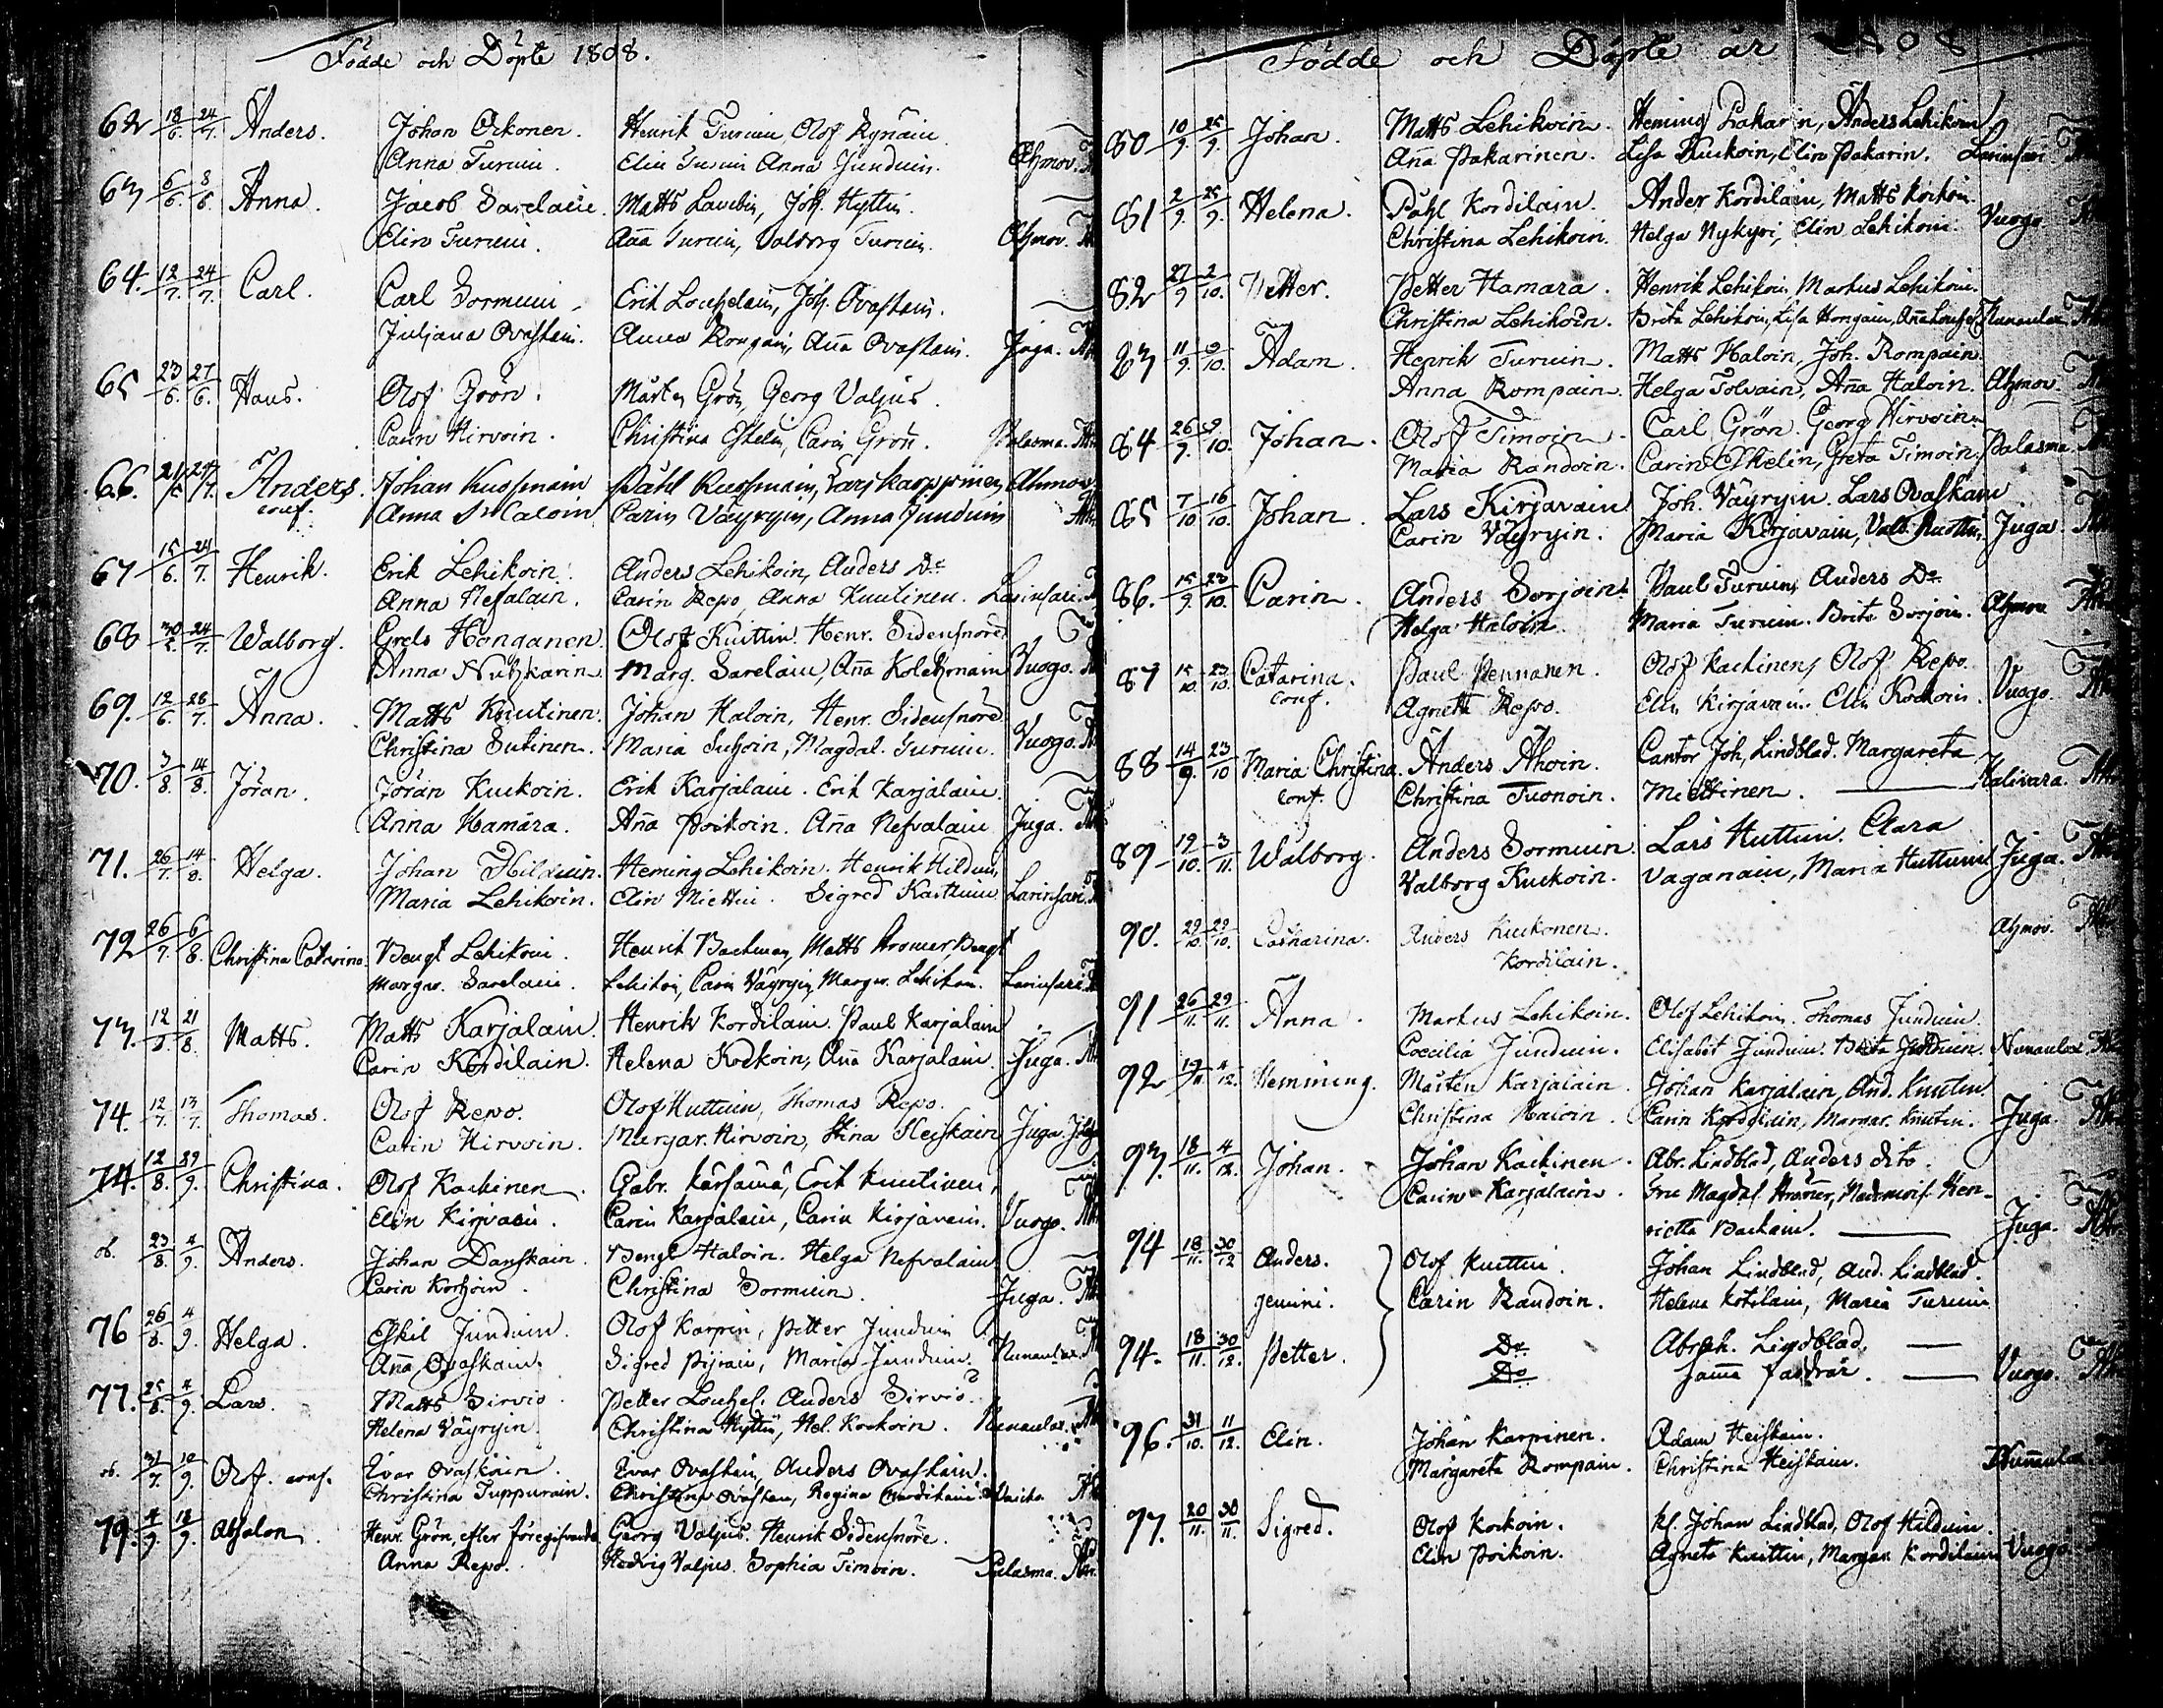 Födde och Döpte 1808.
62 18/6. 24/7. Anders. Johan Orkonen. Henrik Turuin, Olof Rynäin
Anna Turuin. Elin Turuin Anna Junduin. Ahmov.
63 6/6. 8/6. Anna. Jacob Sarelain. Matts Lauckin, Joh. Hyttin.
Elin Turuin. Aña Turuin, Valborg Turuin. Ahmov.
64. 12/7. 24/7. Carl. Carl Sormuin. Erik Louhelain, Joh. Ovaskain.
Juliana Ovaskain. Anna Rompain, Aña Ovaskain. Juga.
65 23/6. 27/6. Hans. Olof Grön. Mårten Grön, Georg Valjus.
Carin Hirvoin. Christina Eskelin, Carin Grön. Palasma.
66. Anders. Johan Kuosmain Påhl Kuosmain, Lars Karppinen Ahmov.
conf. Anna Haloin Carin Väyryin, Anna Junduin
67 15/6. 24/7. Henrik. Erik Lehikoin. Anders Lehikoin, Anders Do
Anna Nefalain. Carin Repo, Anna Knutinen. Larinsari.
68 24/7. Walborg. Grels Honganen. Olof Kuittin. Henr. Sidensnöre
Anna Nuhkarin. Marg. Sarelain, Aña Kolehmain Vuogo.
69. 12/6. 28/7. Anna. Matts Knutinen. Johan Haloin, Henr. Sidensnöre
Christina Sutinen. Maria Suhoin, Magdal. Turuin. Vuogo.
70. 3/8. 14/8. Jöran. Jöran Kuckoin. Erik Karjalain. Erik Karjalain.
Anna Hamara. Aña Poikoin. Aña Nefvalain Juga.
71. 26/7. 14/8. Helga. Johan Hilduin. Heming Lehikoin. Henrik Hilduin
Maria Lehikoin. Elin Miettin. Sigred Kaittuin Larinsari.
72 26/7. 6/8. Christina Catarina. Bengt Lehikoin. Henrik Backman, Matts Aromer, Bengt
Margar. Sarelain. Lehikoin, Carin Väyryin, Margar. Lehikoin. Larinsari
73. 12/8. 21/8. Matts. Matts Karjalain. Henrik Kordilain. Paul Karjalain
Carin Kordilain. Helena Kockoin, Aña Karjalain Juga.
74. 12/7. 13/7. Thomas. Olof Repo. Olof Huttuin, Thomas Repo.
Catin Hirvoin. Margar. Hirvoin, Stina Heiskain Juga.
74. 12/8. Christina. Olof Kackinen. Gabr. Kärsämä, Erik Knutinen,
Elin Kirjvain. Carin Karjalain, Carin Kirjavain. Vuogo.
ob. 23/8. 4/9. Anders. Johan Danskain. Bengt Haloin. Helga Nefvalain
Carin Korhoin. Christina Sormuin. Juga.
76 26/8. 4/9. Helga. Eskil Junduin. Olof Karpin, Petter Junduin
Aña Ovaskain. Sigred Piirain, Maria Junduin. Nunanlax.
77. 25/8. 4/9. Lars. Matts Sirviö. Petter Louhel. Anders Sirviö
Helena Väyryin. Christina Hyttin, Hel. Kockoin. Nunanlax.
ob. 31/7. 10/9. Olof. conf. Ivar Ovaskain. Ivar Ovaskain, Anders Ovaskain.
Christina Tuppurain. Christina Ovaskan, Regina
79. 4/9. 18/9. Absalon. Henr. Grön, efter föregifvande Georg Valjus. Henrik Sidensnöre.
Anna Repo. Hedvig Valjus. Sophia Timoin. Palasma.
Födde och Döpte år 1808
80 10/9. 25/9. Johan. Matts Lehikoin. Heming Pakarin, Anders Lehikoin
Aña Pakarinen. Lisa Kuckoin, Elin Pakarin. Larinsari
81 2/9. 25/9. Helena. Påhl Kordilain. Ander Kordilain, Matts Kockoin.
Christina Lehikoin. Helga Nykyri, Elin Lehikoin. Vuogo.
82 27/9 2/10. Petter. Petter Hamara. Henrik Lehikoin, Markus Lehikoin.
Christina Lehikoin. Brita Lehikoin, Lisa Hongain, Aña Louhel. Nunanlax
83 11/9. 9/10. Adam. Henrik Turuin. Matts Haloin, Joh. Rompain.
Anna Rompain. Helga Tolvain, Aña Haloin. Ahmov.
84 26/9. 9/10. Johan. Olof Timoin. Carl Grön. Georg Hirvoin
Maria Randoin. Carin Eskelin, Greta Timoin. Palasma
85 7/10. 16/10. Johan. Lars Kirjavain Joh. Väyryin. Lars Ovaskain
Carin Väyryin. Maria Kirjavain, Valb. Kuittin. Juga.
86. 15/9. 23/10. Carin. Anders Sorjoin. Paul Turuin, Anders Do
Helga Haloin. Maria Turuin. Brita Sorjoin. Ahmov
87 15/10. 23/10. Catarina. Paul Pennanen. Olof Kackinen, Olof Repo.
conf. Agneta Repo. Elin Kirjavain. Elin Kockoin. Vuogo.
88 14/9. 23/10 Maria Christina. Anders Ahoin. Cantor Joh. Lindblad. Margareta
conf. Christina Tuonoin. Miettinen. Halivara.
89 19/10. 3/11. Walborg. Anders Sormuin. Lars Huttuin. Clara
Valborg Kuckoin. Vaganain, Maria Huttuin Juga.
90. 29/10. 29/10. Catharina. Anders Kuckonen. Ahmov.
Kordilain.
91 26/11. 29/11. Anna. Markus Lehikoin. Olof Lehikoin. Thomas Junduin.
Coecilia Junduin. Elisabet Junduin. Brita Junduin. Nunanlax
92 19/11. 4/12. Hemming. Mårten Karjalain. Johan Karjalain, And. Knutin.
Christina Haloin. Carin Kordilain, Margar. Knutin. Juga.
93. 18/11. 4/12. Johan. Johan Kackinen. Abr. Lindblad, Anders dito.
Carin Karjalain. Fru Magdal. Aromer, Mademois. Hen-
rietta Backain. Juga.
94 18/11. 30/12 Anders. Olof Kuittin. Johan Lindblad, And. Lindblad.
gemini. Carin Randoin. Helena Kotilain, Maria Turuin
94. 18/11. 30/12. Petter. Do Abrah. Lindblad.
Do Samma faddrar. Vuogo.
96. 31/10. 11/12. Elin. Johan Karpinen. Adam Heiskain.
Margareta Rompain. Christina Heiskain. Nunanlax
97. 20/11. 30/11. Sigred. Olof Kockoin. Kl. Johan Lindblad, Olof Hilduin.
Elin Poikoin. Agneta Kuittin, Margar. Kordilain Vuogo.